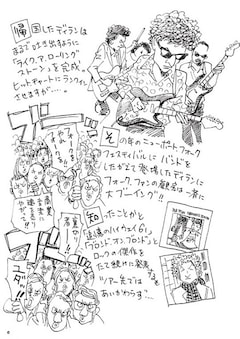 帰国したディランは
まるで吐き出すように
「ライク・ア・ローリング
ストーン」を完成。
ヒットチャートにランクイン
させますが……。
ブー
その年のニューポートフォーク
フェスティバルにバンドを
したがえて登場したディランに
フォーク・ファンの観客は一斉に
"ブーイング"!!
フォークを
裏切り者!
ブー
知ったことかと
「追憶のハイウェイ61」
「ブロンド・オン・ブロンド」と
ロックの傑作を
たて続けに発表するも
ツアー先では
あいかわらず…。
ユダ!!